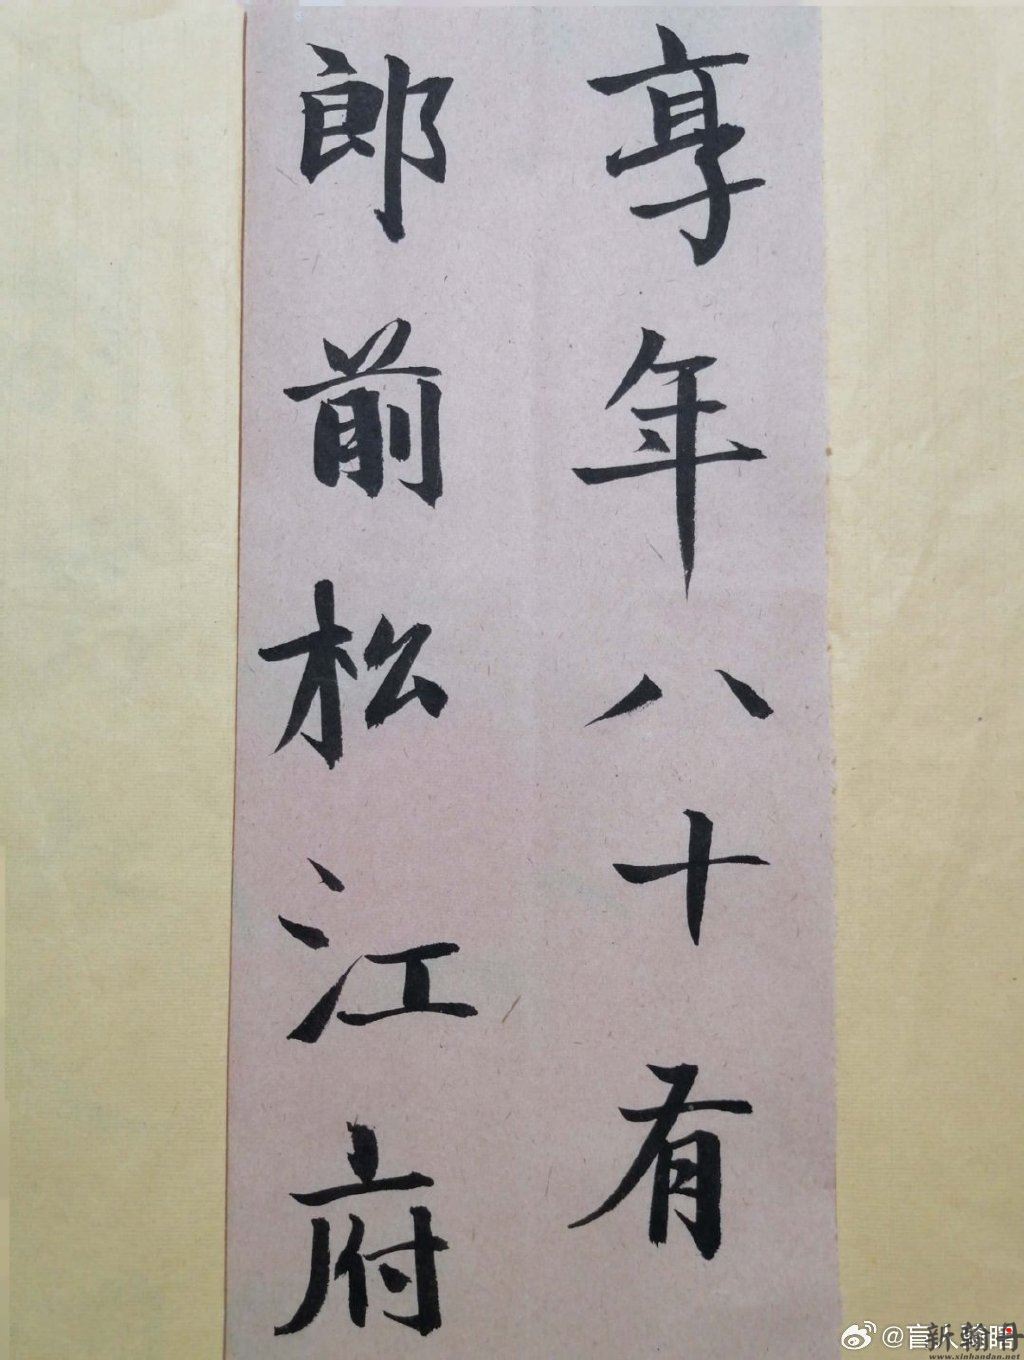 享年八十有
郎前松江府
@盲人翰瞎
新翰丹
www.xinhandan.net